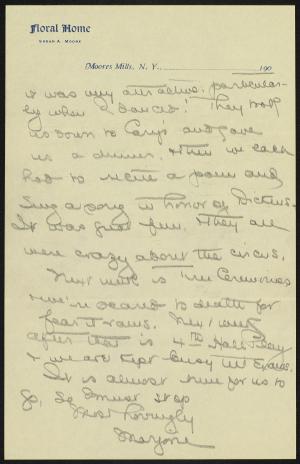 Floral Home
SUSAN A. MOORE
Moores Mills, N. Y., 190
it was very particular-
ly when I danced! They took
us down to Camp and gave
us a dinner. Then we each
had to recite a poem and
sing a song in honor of
It was great fun. They all
were crazy about the circus.
Next week is Tree Ceremonies
& we're scared to death for
fear it rains. Next week
after that is 4th Hall Play
& we are kept busy till Exams.
It is almost time for us to
go, so I must stop
Most lovingly
Marjorie